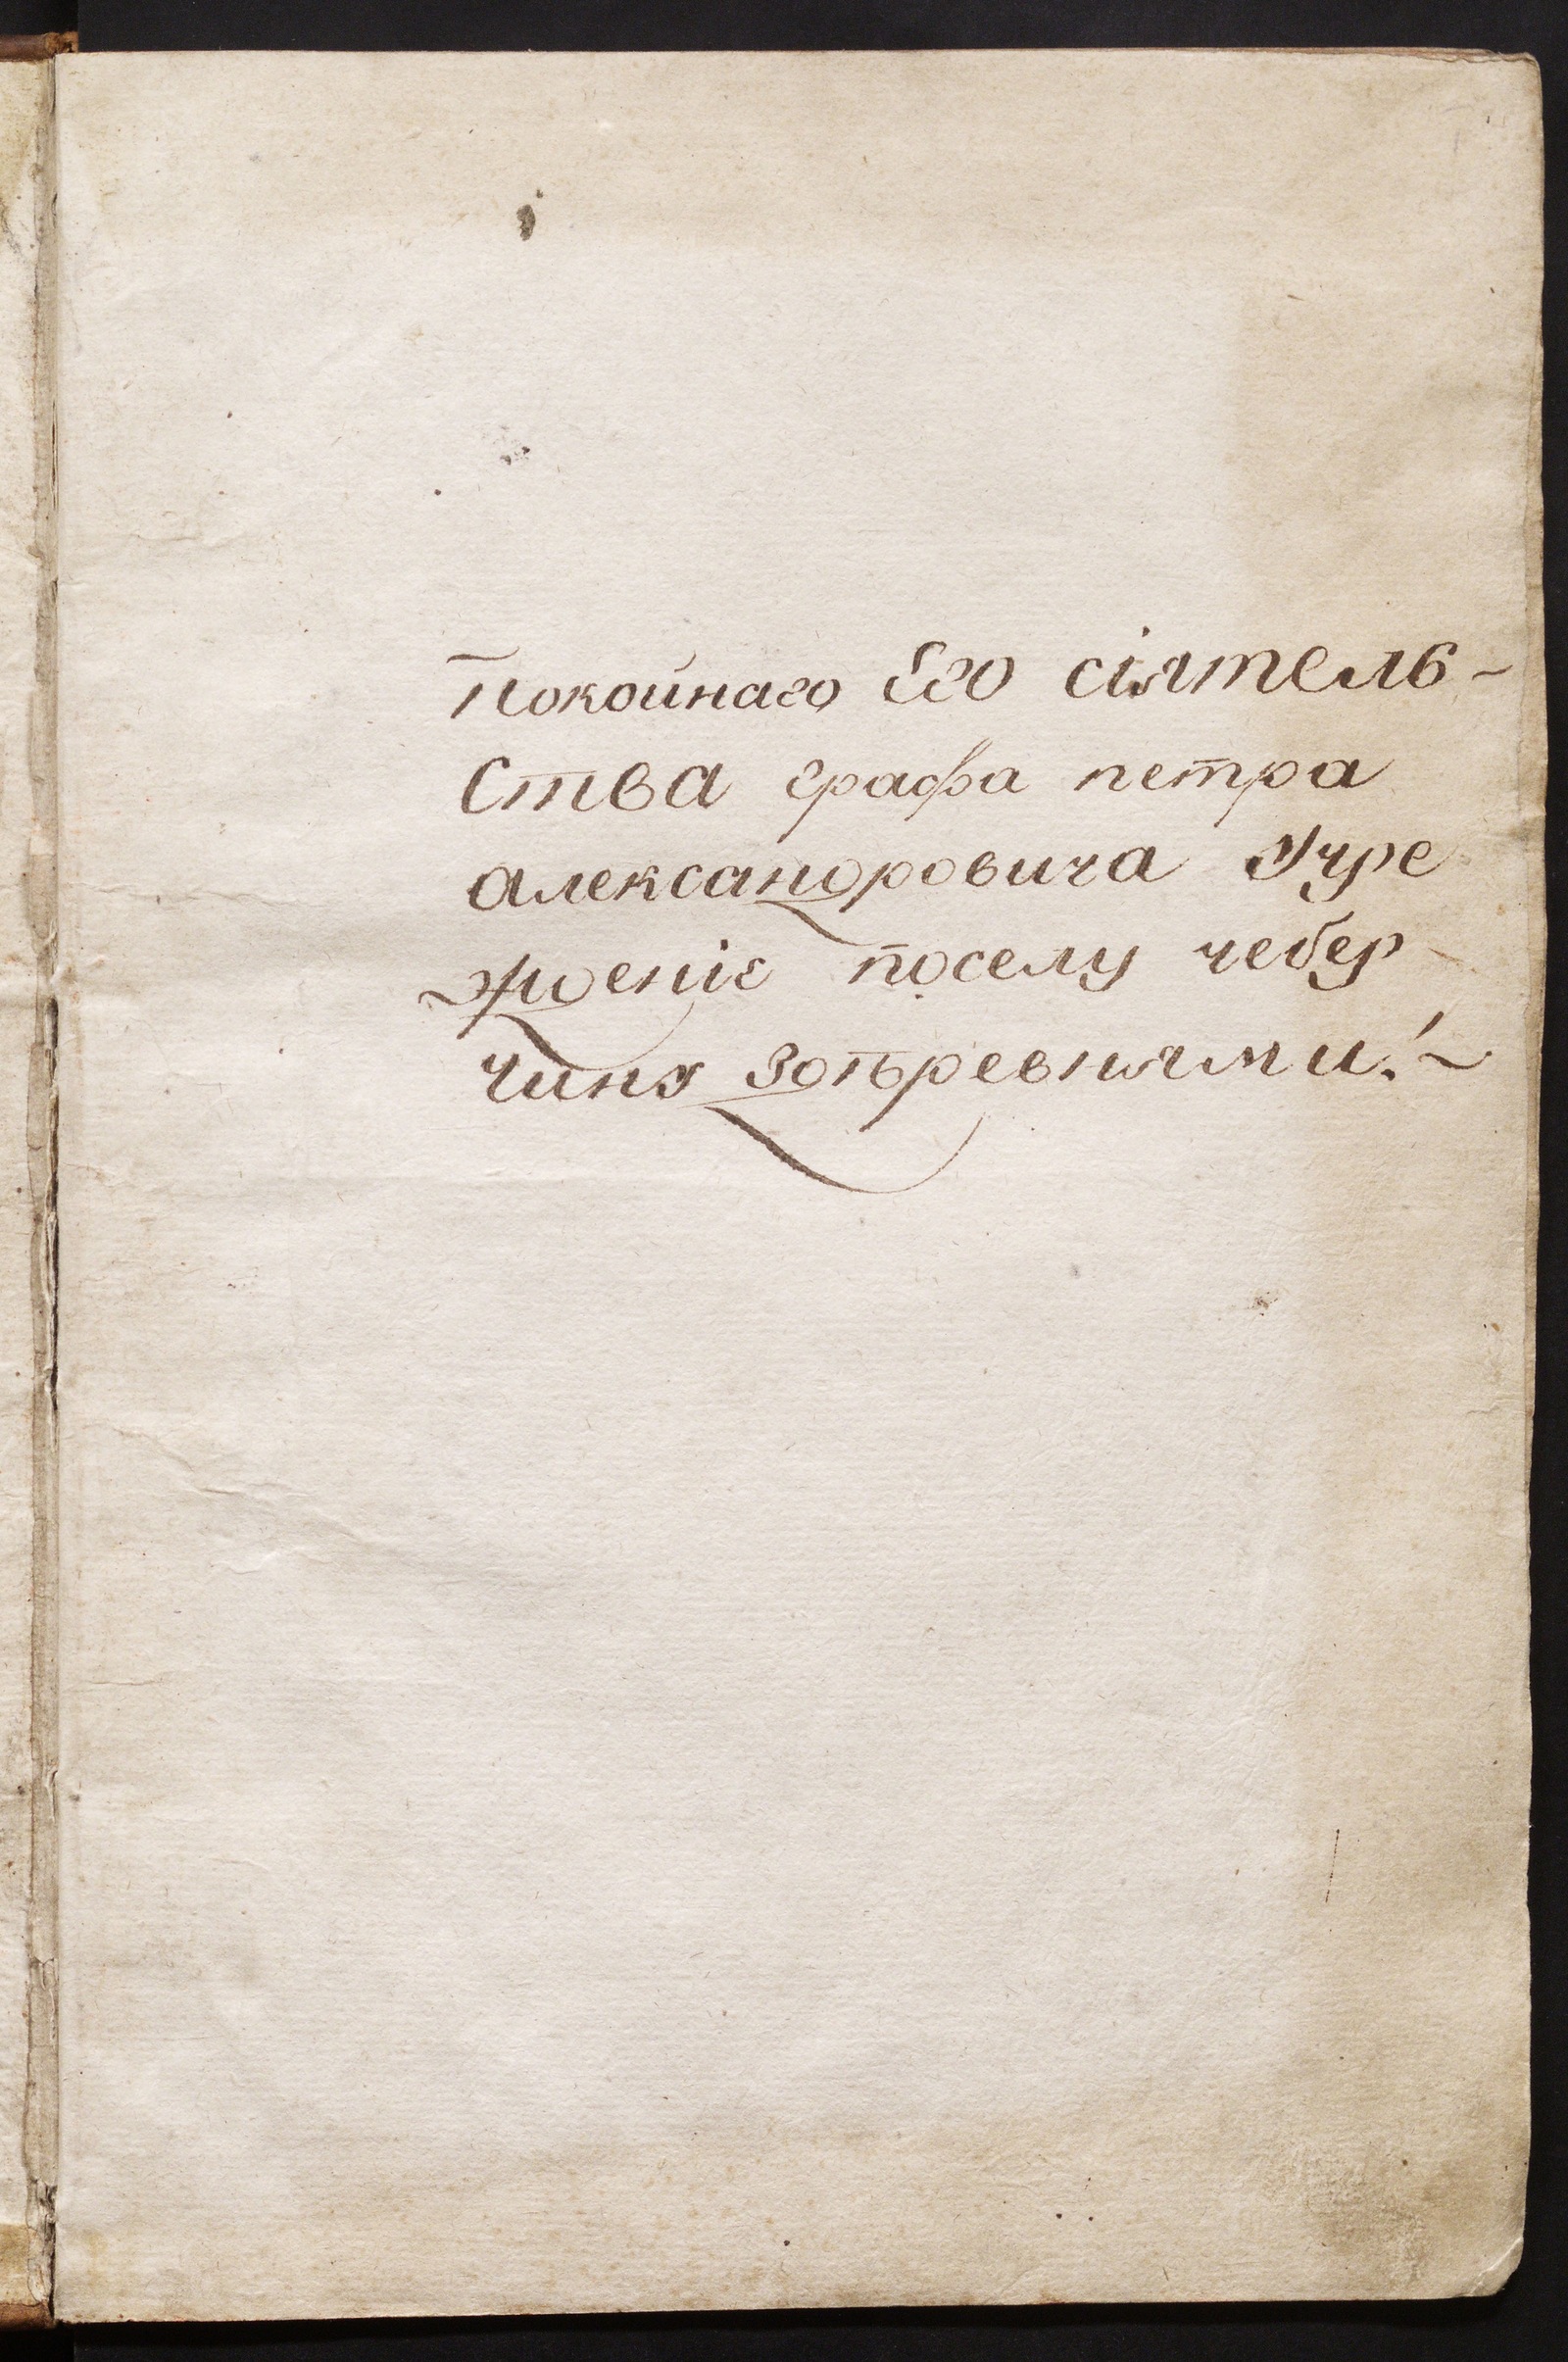 покойнаго Его сіятель-
ства графа петра
александровича Учре
жденіе поселу чебер
чину здѣревнями:~